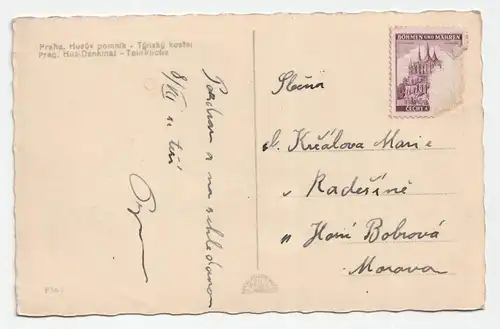 Praha. Husův pomník - Týnský kostel
Prag. Hus-Denkmal - Teinkirche
Pozdrav a na schledanou
8/XI v
BÖHMEN UND MÄHREN
ČECHY A
Slečna
Křčálova Marie
v Radešíně
Horní Bobrová
Morava